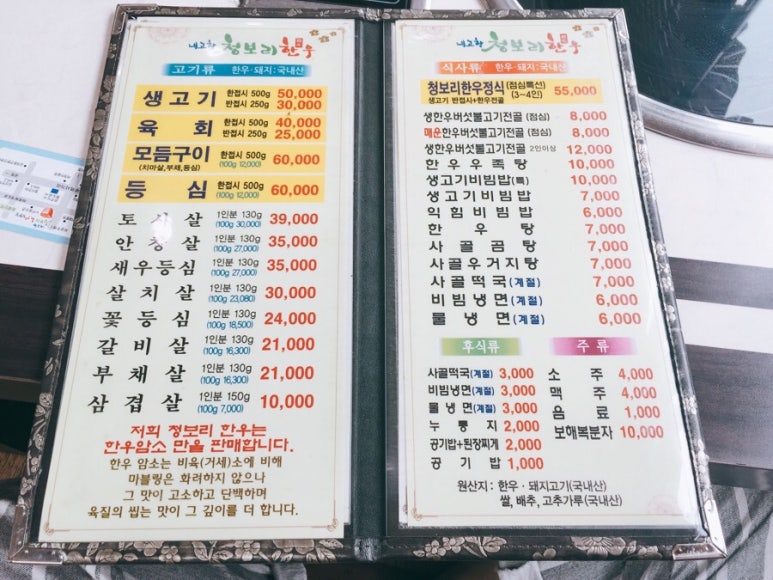 내고향 청보리한우
고기류 한우·돼지:국내산
생고기 한접시 500g 50,000
반접시 250g 30,000
육회 한접시 500g 40,000
반접시 250g 25,000
모듬구이 한접시 500g 60,000
(치마살,부채,등심) (100g 12,000)
등심 한접시 500g 60,000
(100g 12,000)
토시살 1인분 130g 39,000
(100g 30,000)
안창살 1인분 130g 35,000
(100g 27,000)
새우등심 1인분 130g 35,000
(100g 27,000)
살치살 1인분 130g 30,000
(100g 23,080)
꽃등심 1인분 130g 24,000
(100g 18,500)
갈비살 1인분 130g 21,000
(100g 16,300)
부채살 1인분 130g 21,000
(100g 16,300)
삼겹살 1인분 150g 10,000
(100g 7,000)
저희 청보리 한우는
한우암소 만을 판매합니다.
한우 암소는 비육(거세)소에 비해
마블링은 화려하지 않으나
그 맛이 고소하고 담백하며
육질의 씹는 맛이 그 깊이를 더 합니다.
내고향 청보리한우
식사류 한우·돼지:국내산
청보리한우정식 (점심특선) 55,000
생고기 반접시+한우전골 (3~4인)
생한우버섯불고기전골 (점심) 8,000
매운한우버섯불고기전골 (점심) 8,000
생한우버섯불고기전골 2인이상 12,000
한우우족탕 10,000
생고기비빔밥(특) 10,000
생고기비빔밥 7,000
익힘비빔밥 6,000
한우탕 7,000
사골곰탕 7,000
사골우거지탕 7,000
사골떡국(계절) 7,000
비빔냉면(계절) 6,000
물냉면(계절) 6,000
후식류
사골떡국(계절) 3,000
비빔냉면(계절) 3,000
물냉면(계절) 3,000
누룽지 2,000
공기밥+된장찌개 2,000
공기밥 1,000
주류
소주 4,000
맥주 4,000
음료 1,000
보해복분자 10,000
원산지 : 한우·돼지고기(국내산)
쌀,배추,고추가루(국내산)